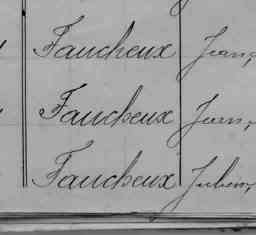 Faucheux Jean,
Faucheux Jean,
Faucheux Julien,